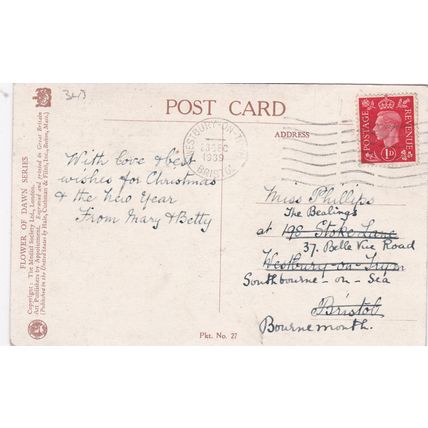 340
POST CARD
ADDRESS
WESTBURY-ON-TRYM
23 DEC
1939
BRISTOL
POSTAGE
REVENUE
1D
With love & best
wishes for Christmas
& the New Year
From Mary & Betty
Miss Phillips
The Bealings
at 198 Stoke Lane
37. Belle Vue Road
Westbury-on-Trym
Southbourne-on-Sea
Bristol
Bournemouth.
Pkt. No. 27
FLOWER OF DAWN SERIES
Copyright: The Medici Society Ltd., London,
Art Publishers by Appointment. Engraved and printed in Great Britain
(Published in the United States by Hale, Cushman & Flint, Inc., Boston, Mass.)